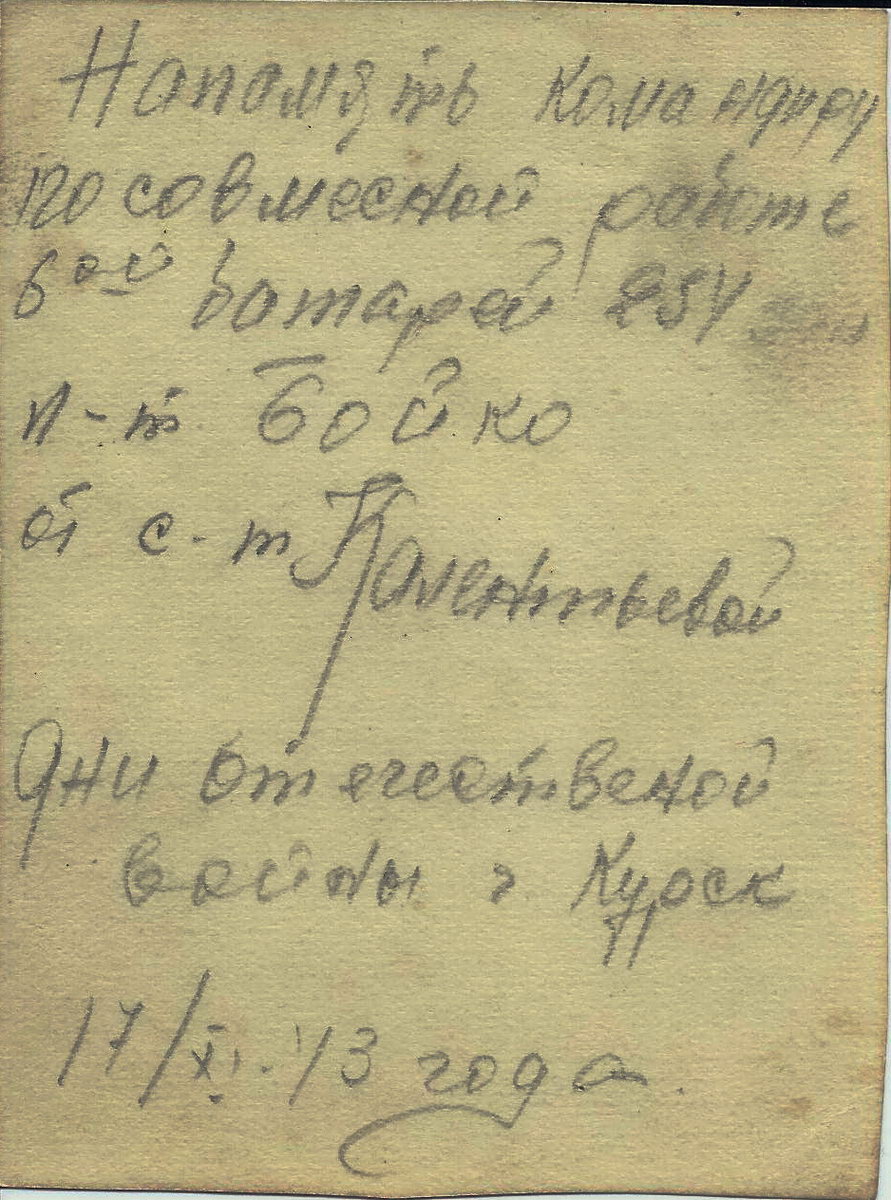 Напомять командиру
по совмесной работе
6ой батарей 254
л-т Бойко
от с-т
Дни отечественой
войны г Курск
17/XI.43 года.